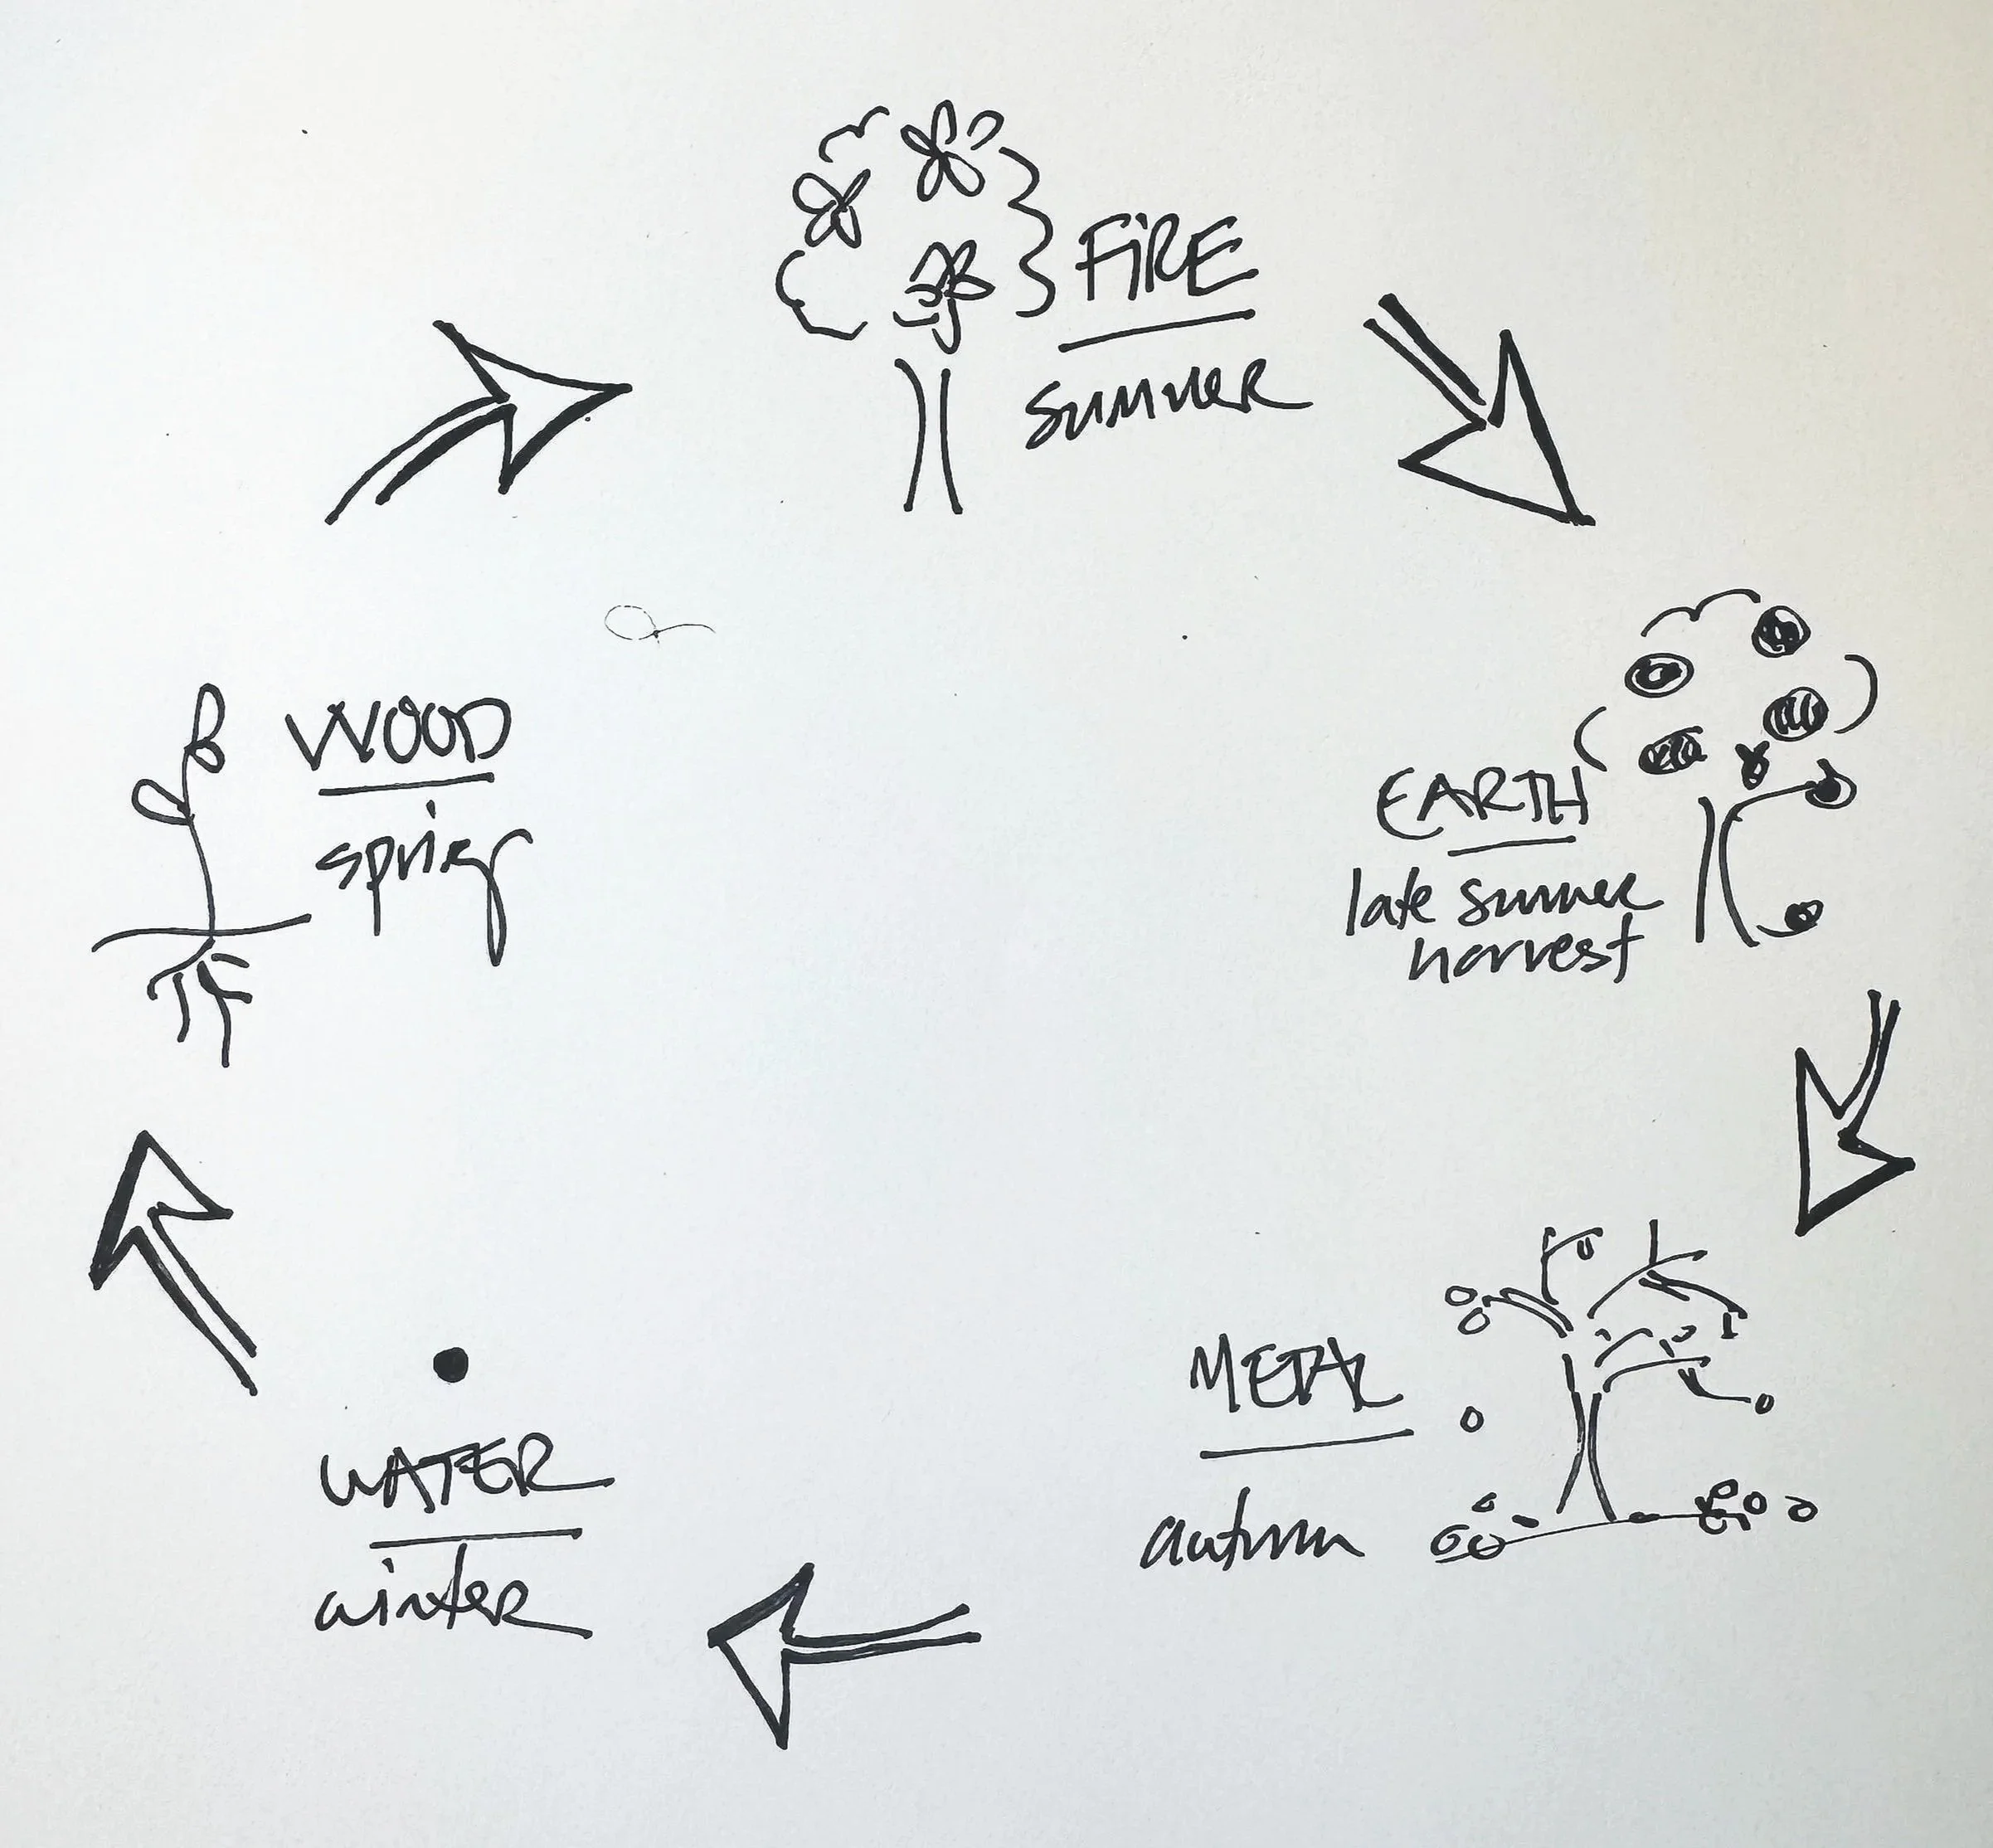 FiRE
summer
WOOD
spring
EARTH
late summer
harvest
METAL
autumn
WATER
winter